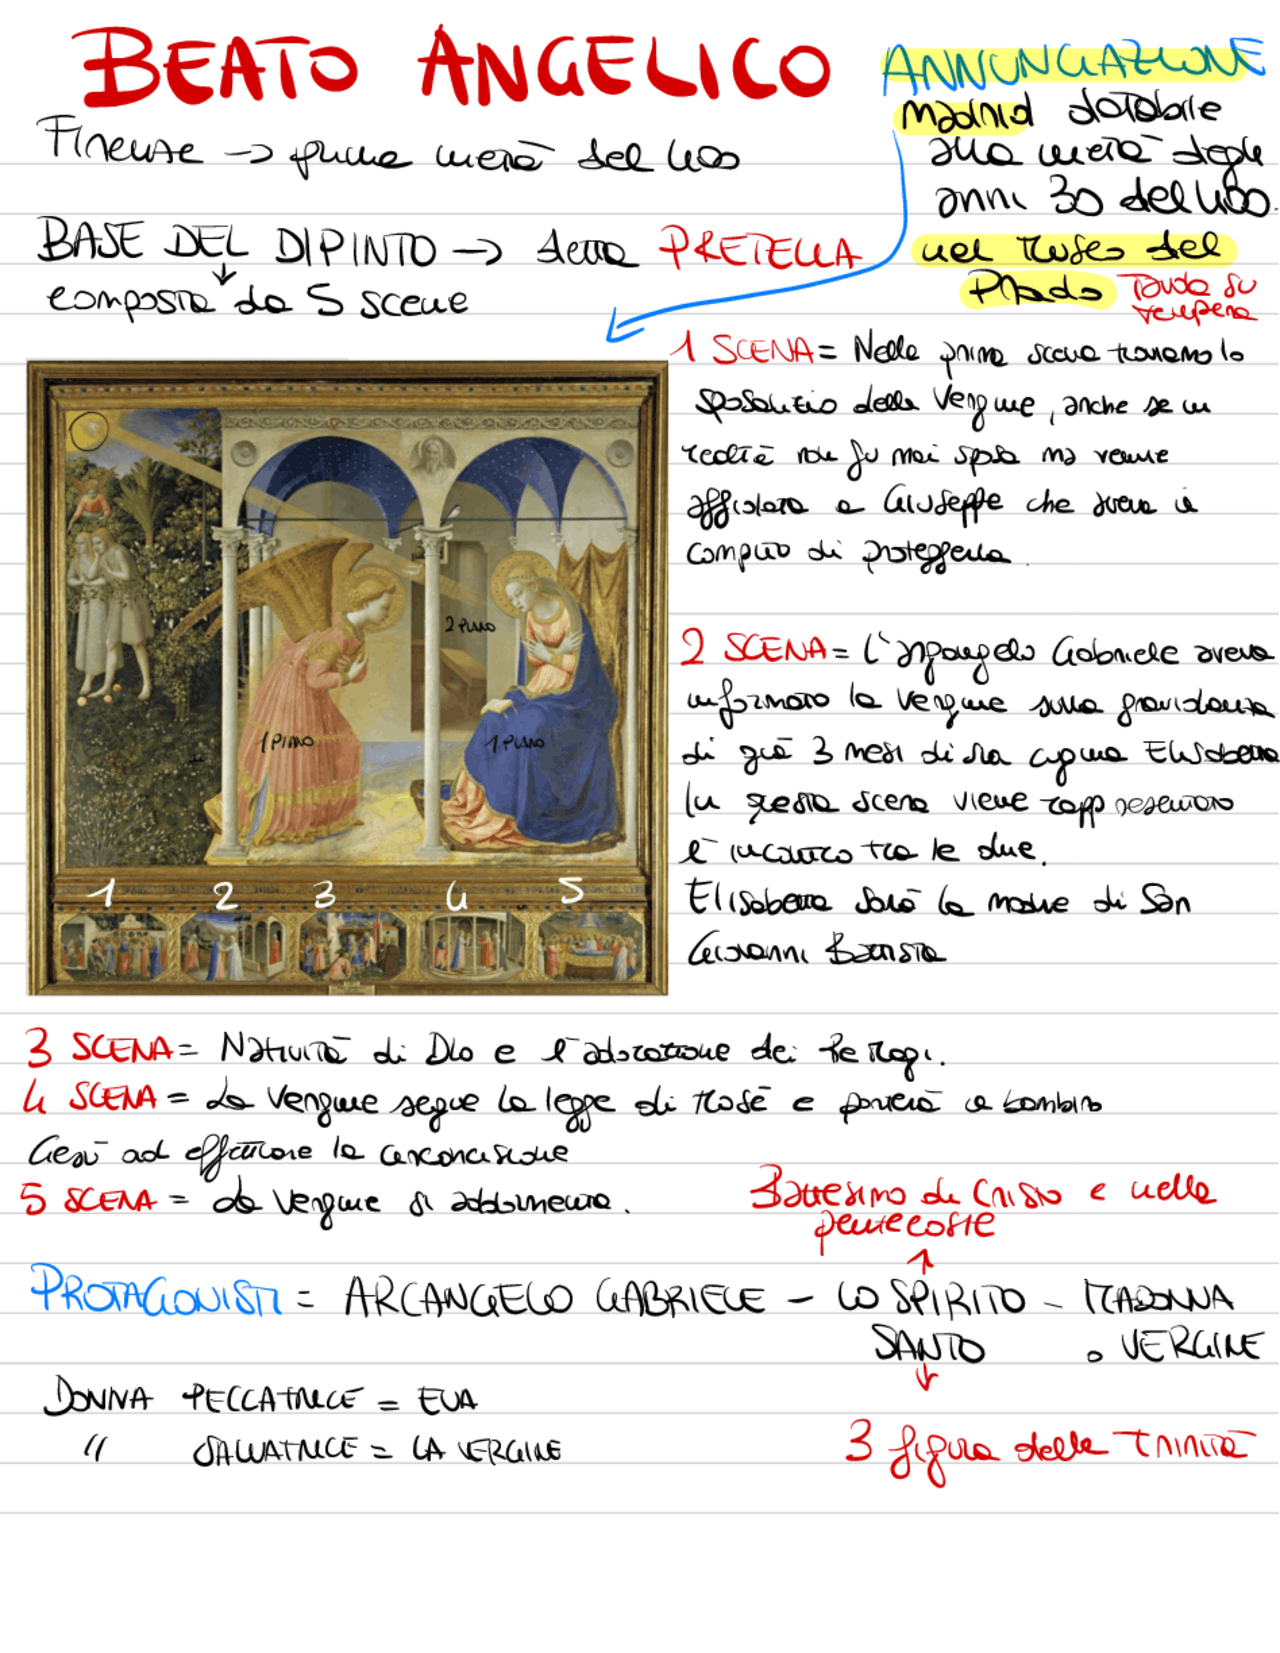 BEATO ANGELICO
ANNUNCIAZIONE
Madrid databile
alla metà degli
anni 30 del 400.
nel Museo del
Prado
Tavola su
tempera
Firenze -> prima metà del 400
BASE DEL DIPINTO -> detta PREDELLA
composta da 5 scene
1 SCENA = Nella prima scena troviamo lo
sposalizio della Vergine, anche se in
realtà non fu mai sposa ma venne
affidata a Giuseppe che aveva il
compito di proteggerla.
2 PIANO
1 PIANO
1 PIANO
2 SCENA = L'arcangelo Gabriele aveva
informato la Vergine sulla gravidanza
di già 3 mesi di sua cugina Elisabetta
In questa scena viene rappresentato
l'incontro tra le due.
Elisabetta sarà la madre di San
Giovanni Battista
1 2 3 4 5
3 SCENA = Natività di Dio e l'adorazione dei Re Magi.
4 SCENA = La Vergine segue la legge di Mosè e porterà il bambino
Gesù ad effettuare la circoncisione
5 SCENA = La Vergine si addormenta.
Battesimo di Cristo e nella
pentecoste
PROTAGONISTI = ARCANGELO GABRIELE - LO SPIRITO - MADONNA
SANTO o VERGINE
DONNA PECCATRICE = EVA
" SALVATRICE = LA VERGINE
3 figura della Trinità